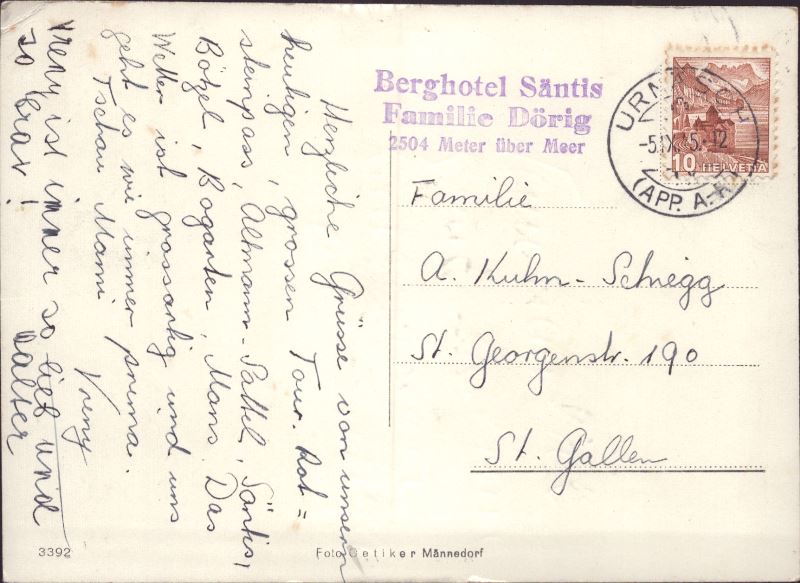 Herzliche Grüsse von unserm
heutigen, grossen Tour. Rot=
steinpass, Altmann-Sattel, Säntis,
Bötzel, Bogarten, Mans. Das
Wetter ist grossartig und uns
geht es wie immer prima.
Tschau Mami Vreny
Vreny ist immer so lieb und
so brav! Walter
Berghotel Säntis
Familie Dörig
2504 Meter über Meer
URNÄSCH
-5.IX.5 -12
(APP. A.-R.)
10 HELVETIA
Familie
A. Kuhn-Schegg
St. Georgenstr. 190
St. Gallen
3392
Foto Oetiker Männedorf